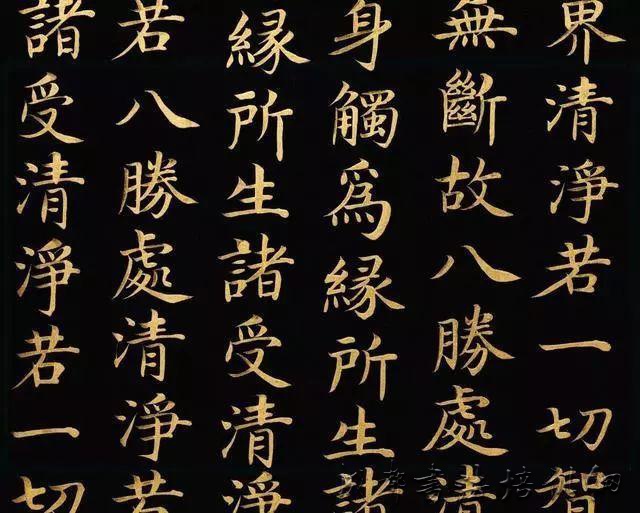 界清淨若一切智
無斷故八勝處清
身觸爲縁所生諸
縁所生諸受清淨
若八勝處清淨若
諸受清淨若一切